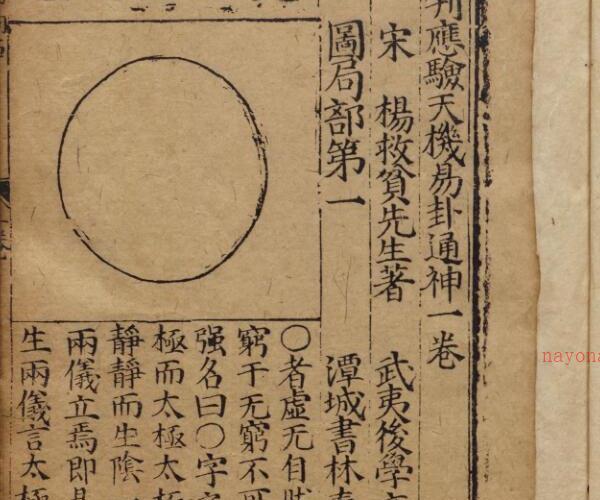 刋應驗天機易卦通神一卷
宋 楊救貧先生著 武夷後學
圖局部第一 潭城書林
〇者虛无自
窮于无窮不可
强名曰〇字
極而太極太極
靜靜而生陰
兩儀立焉即
生兩儀言太極
nayona